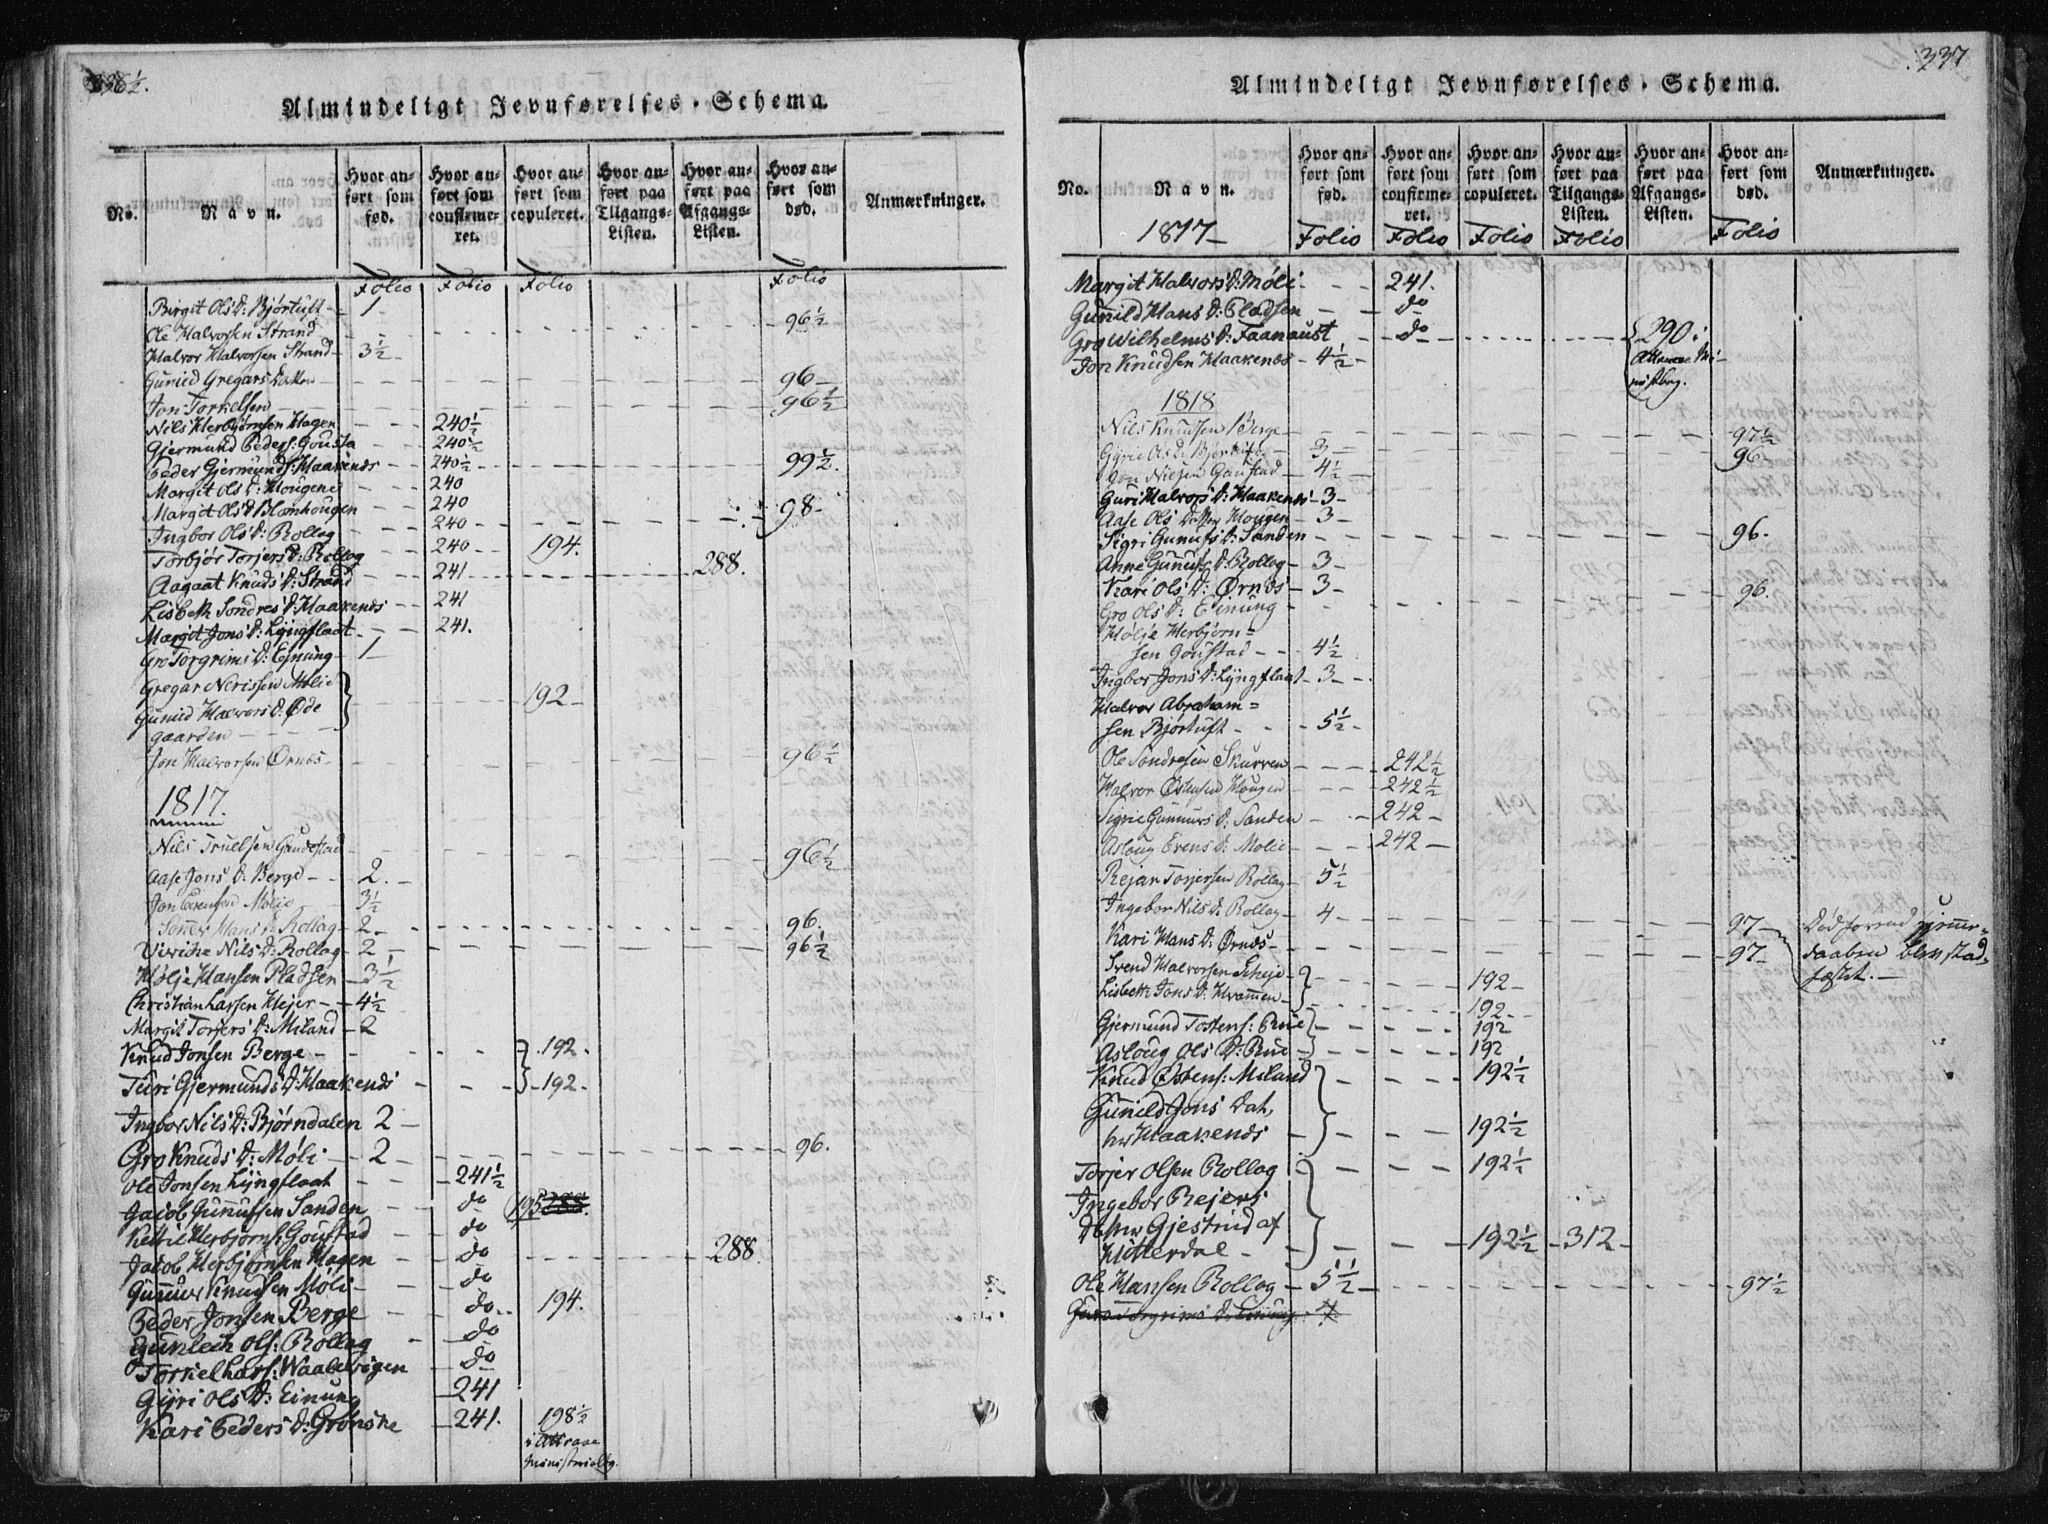 336½.
Almindeligt Jevnførelses-Schema.
No. Navn. Hvor anført som fød. Hvor anført som confirmeret. Hvor anført som copuleret. Hvor anført paa Tilgangs-Listen. Hvor anført paa Afgangs-Listen. Hvor anført som død. Anmærkninger.
Folio Folio Folio Folio
Birgit Ols D: Bjørtuft 1
Ole Halvorsen Strand 96½
Halvor Halvorsen Strand 3½
Gunild Gregars 96
Jon Torkelsen 96½
Nils Herbjørnsen Hagen 240½
Gjermund Peders: Gousta 240½
Peder Gjermunds: Haakenæs 240½ 99½.
Margit Ols D: Hougene 240
Margit Ols D Blomhougen 240 98
Ingbor Ols D: Rollag 240
Torbjør Torjers D: Rollag 240 194.
Aagaat Knuds D: Strand 241 288.
Lisbeth Sondres D: Haakenæs 241
Margit Jons D: Lÿngflaat 241.
Gro Torgrims D: Ejnung 1
Gregar Nerissen Mølie
Gunild Halvors D: Øde 192
gaarden
Jon Halvorsen Ørnæs 96½
1817.
Nils Truelsen Gaudestad 96½
Aase Jons D: Berge 2.
Jon Evensen Mølie 3½
Hans D: Rollag 2. 96.
Nils D: Rollag 2 96½
Hølje Hansen Pladsen 3½
Christian Larsen Hejer 4½
Margit Torjers D: Miland 2
Knud Jonsen Berge 192.
Turi Gjermunds D: Haakenæs 192.
Ingbor Nils D: Bjørndalen 2
Gro Knuds D: Møli 2 96.
Ole Jonsen Lÿngflaat 241½
Jacob Gunnufsen Sanden do 195 288.
Kettil Herbjørns: Goustad do
Jacob Herbjørnsen Hagen do 288.
Gunnur Knudsen Møli do
Peder Jonsen Berge do 194.
Gunlech Ols: Rollag do
Torkel Lars: Waalebøgen do
Gÿri Ols D: Einung 241
Kari Peders D: Grønske 241. 198½
i Attraae
Ministerialbog.
337
Almindeligt Jevnførelses-Schema.
No. Navn. Hvor anført som fød. Hvor anført som confirmeret. Hvor anført som copuleret. Hvor anført paa Tilgangs-Listen. Hvor anført paa Afgangs-Listen. Hvor anført som død. Anmærkninger.
1817 Folio Folio Folio Folio Folio
Margit Halvors D: Møli 241.
Gunild Hans D: Pladsen do
Gro Wilhelms D: Faanaust do 290 i
Jon Knudsen Haakenæs 4½
1818
Nils Knudsen Berge 97½
Gÿrie Ols D: Bjørtuft 3 96
Jon Nielsen Gaustad 4½
Guri Halvors D: Haakenæs 3
Aase Ols Hougen 3
Sigri Gunufs D: Sanden 96.
Anne Gunufs D: Rollag 3
Kari Ols D: Ørnæs 3
Gro Ols D: Einung 96.
Hølje Herbjørn=
sen Goustad 4½
Ingbor Jons D: Lÿngflaat 3
Halvor Abraham=
sen Bjørtuft 5½
Ole Sondresen Skurven 242½
Halvor Østensen Hougen 242½
Sigrie Gunnurs D: Sanden 242
Asloug Evens D: Molie 242
Rejar Torjersen Rollag 5½
Ingebor Nils D: Rollag 4 97 Død forend hjemme=
Kari Hans D: Ørnæs 97 daaben blev stad=
Svend Halvorsen 192 fæstet.
Lisbeth Jons D: Hvammen 192
Gjermund Tostens: Rue 192
Asloug Ols D: Rue 192
Knud Østens: Miland 192½
Gunild Jons Dat,
Haakenæs 192½
Torjer Olsen Rollag 192½
Ingebor Rejers
Gjestrud af
Hitterdal 192½ 312
Ole Hansen Rollag 5½ 97½
Torgrims D: Einung